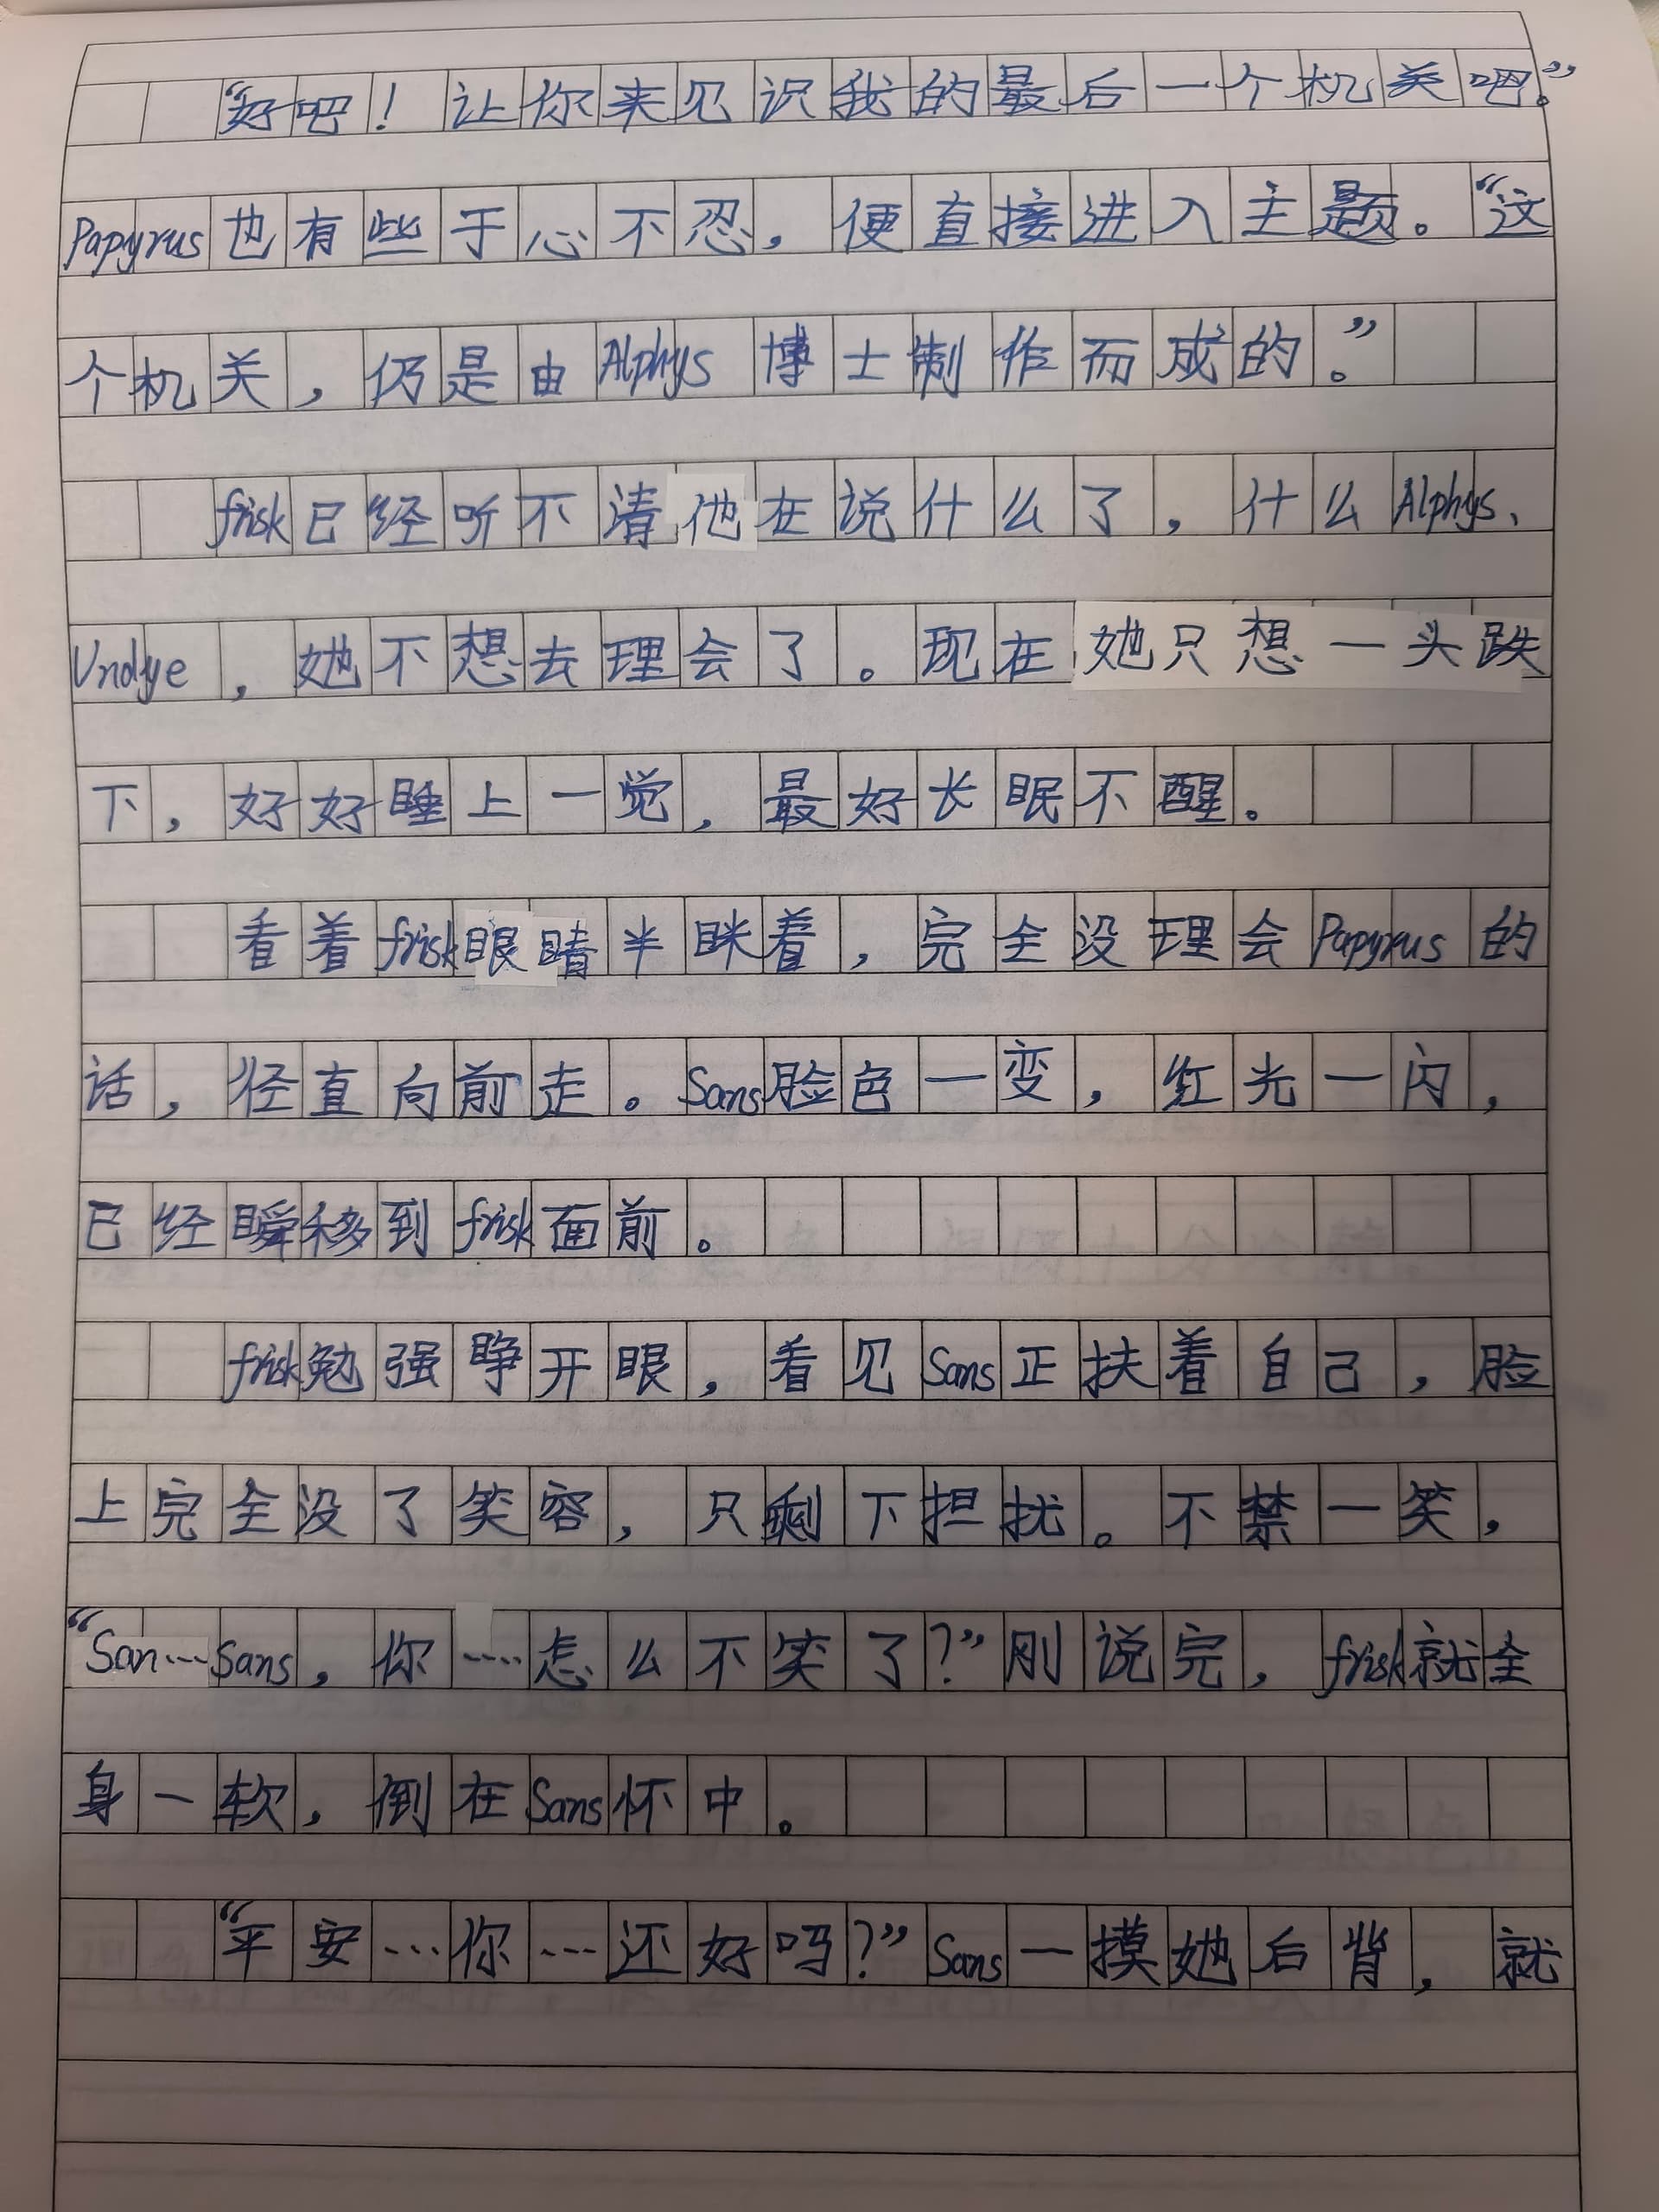 “好吧！让你来见识我的最后一个机关吧。”
Papyrus也有些于心不忍，便直接进入主题。“这
个机关，仍是由Alphys博士制作而成的。”
frisk已经听不清他在说什么了，什么Alphys、
Undye，她不想去理会了。现在她只想一头跌
下，好好睡上一觉，最好长眠不醒。
看着frisk眼睛半眯着，完全没理会Papyrus的
话，径直向前走。Sans脸色一变，红光一闪，
已经瞬移到frisk面前。
frisk勉强睁开眼，看见Sans正扶着自己，脸
上完全没了笑容，只剩下担扰。不禁一笑，
“San…Sans，你……怎么不笑了？”刚说完，frisk就全
身一软，倒在Sans怀中。
“平安…你…还好吗？”Sans一摸她后背，就